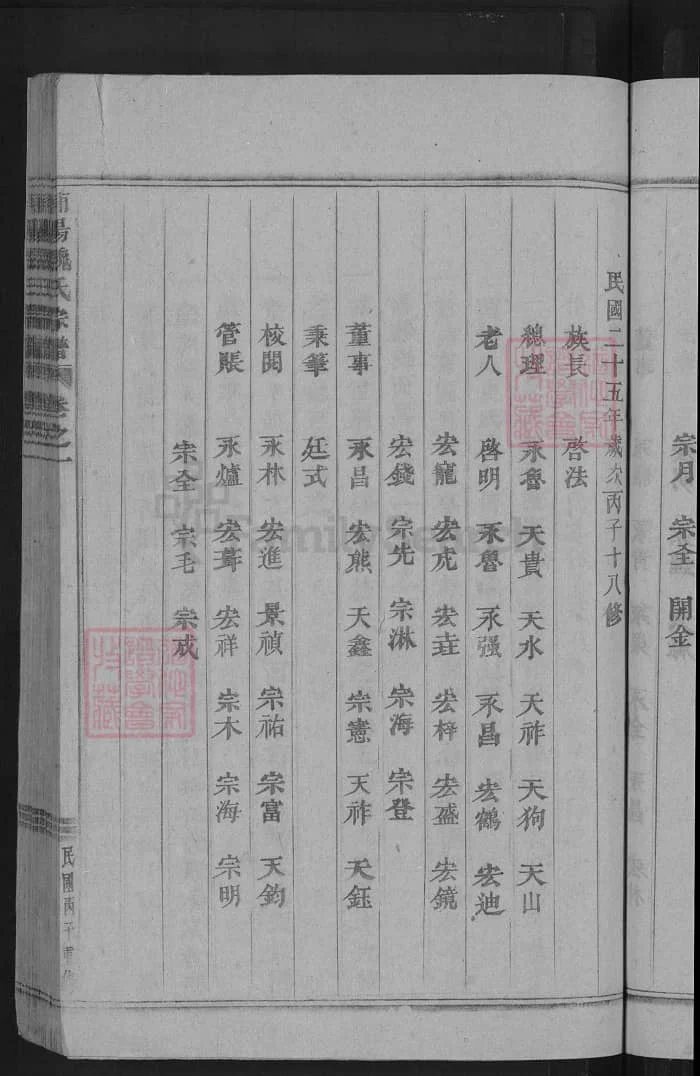 宗月 宗全 開金
民國二十五年歲次丙子十八修
族長 啓法
總理 永魯 天貴 天水 天祚 天狗 天山
老人 啓明 永魯 永强 永昌 宏鶴 宏迪
宏寵 宏虎 宏垚 宏梓 宏盛 宏鏡
宏錢 宗先 宗淋 宗海 宗登
董事 永昌 宏熊 天鑫 宗憲 天祚 天鈺
秉筆 廷式
校閱 永林 宏進 景禎 宗祐 宗富 天鈞
管賬 永爐 宏葦 宏祥 宗木 宗海 宗明
宗全 宗毛 宗戒
南陽 氏宗譜 卷之一
民國丙子重修